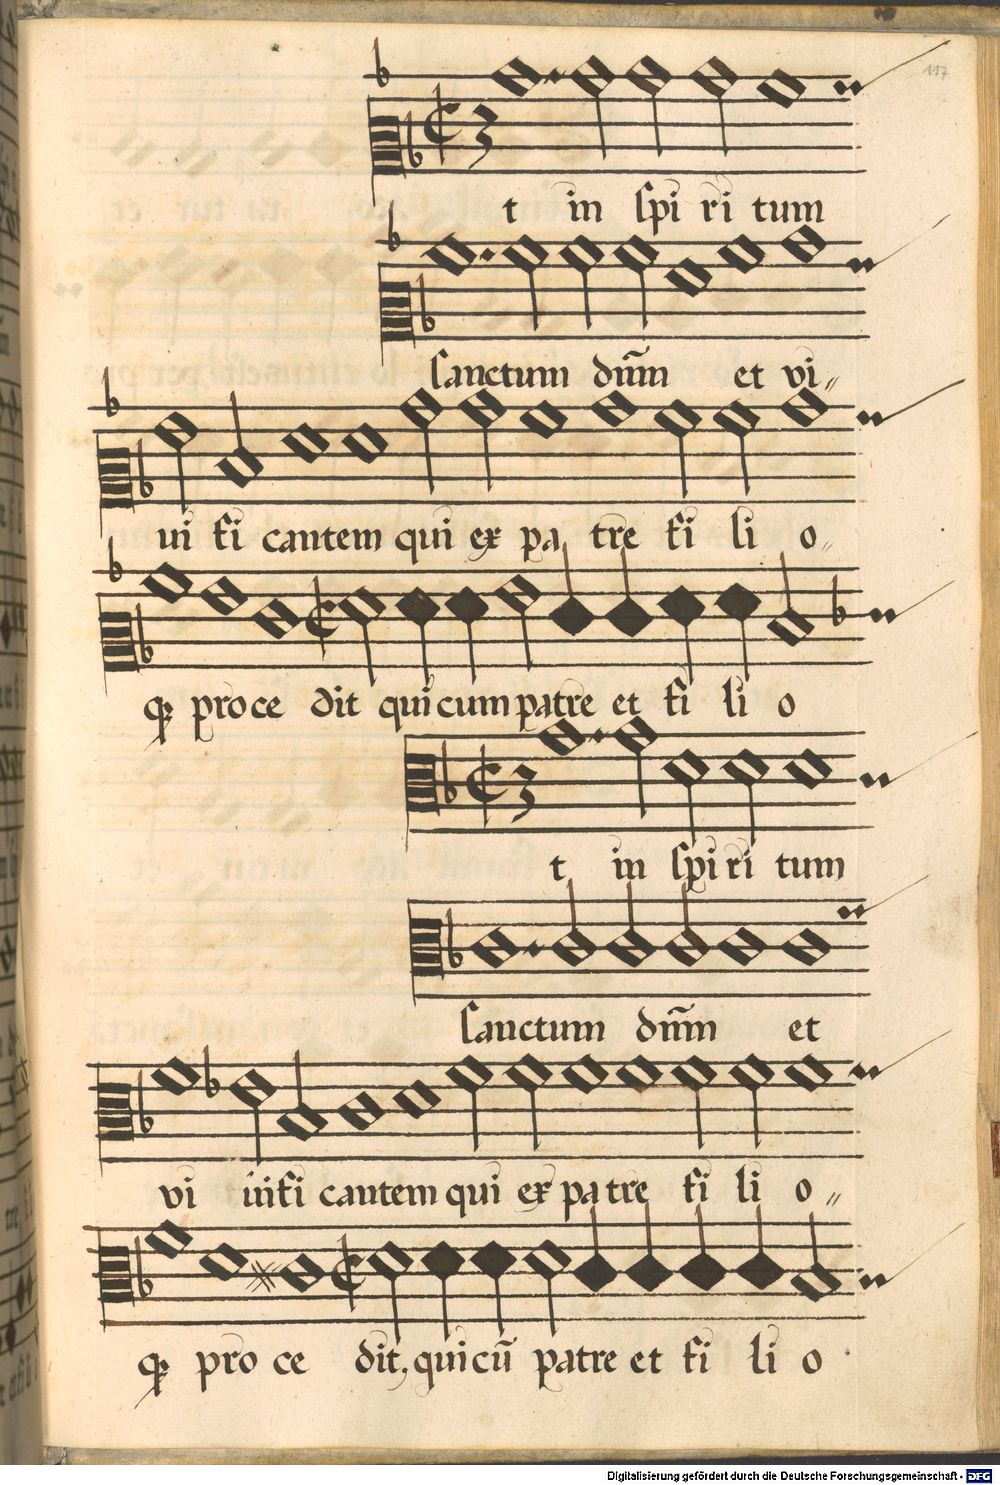 117
t in spi ri tum
sanctum dn̄m et vi〃
ui fi cantem qui ex pa tre fi li o〃
qꝫ pro ce dit qui cum patre et fi li o
t in spi ri tum
sanctum dn̄m et
vi uifi cantem qui ex pa tre fi li o〃
qꝫ pro ce dit, qui cū patre et fi li o
Digitalisierung gefördert durch die Deutsche Forschungsgemeinschaft - DFG